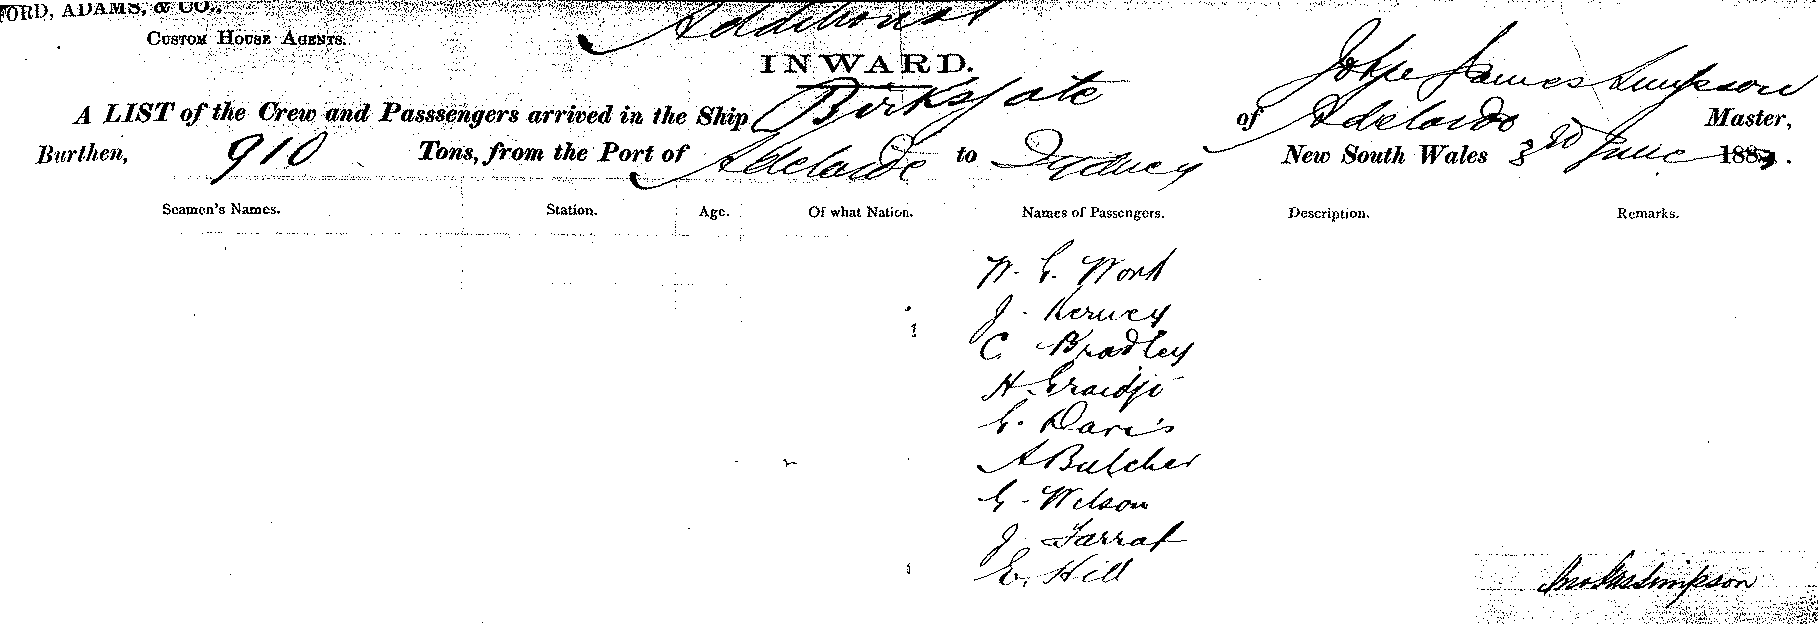 FORD, ADAMS, & CO.,
CUSTOM HOUSE AGENTS.
Additional
INWARD.
A LIST of the Crew and Passsengers arrived in the Ship Birksgate of Adelaide James Simpson Master,
Burthen, 910 Tons, from the Port of Adelaide to Sydney New South Wales 3rd June 188
Seamen's Names. Station. Age. Of what Nation. Names of Passengers. Description. Remarks.
W. G. Work
J. Kervey
C. Bradley
H.
G. Davis
A Butcher
G. Wilson
J. Farrat
E. Hill
Simpson